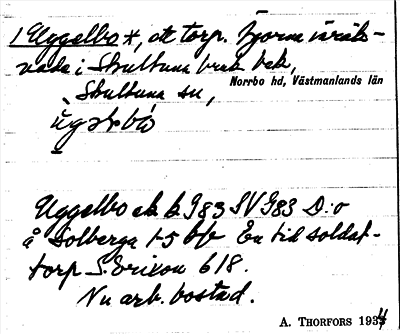 1 Uggelbo *, ett torp. Egorna inräk-
nade i Skultuna bruk bek,
Norrbo hd, Västmanlands län
Skultuna sn,
ug bo
Uggelbo ek b G83 SV G83 D:o
å Solberga 1-5 En tid soldat-
torp S. Erixon 618.
Nu arb. bostad.
A. THORFORS 1934